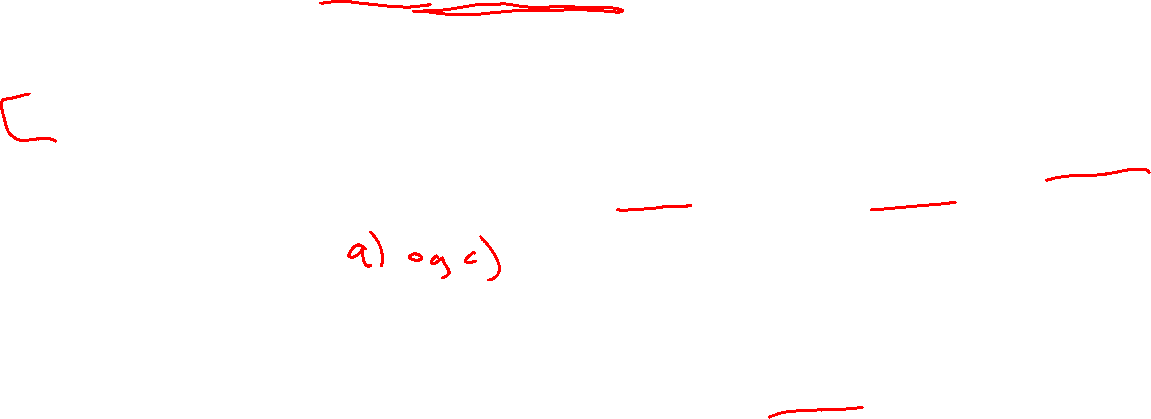 a) og c)